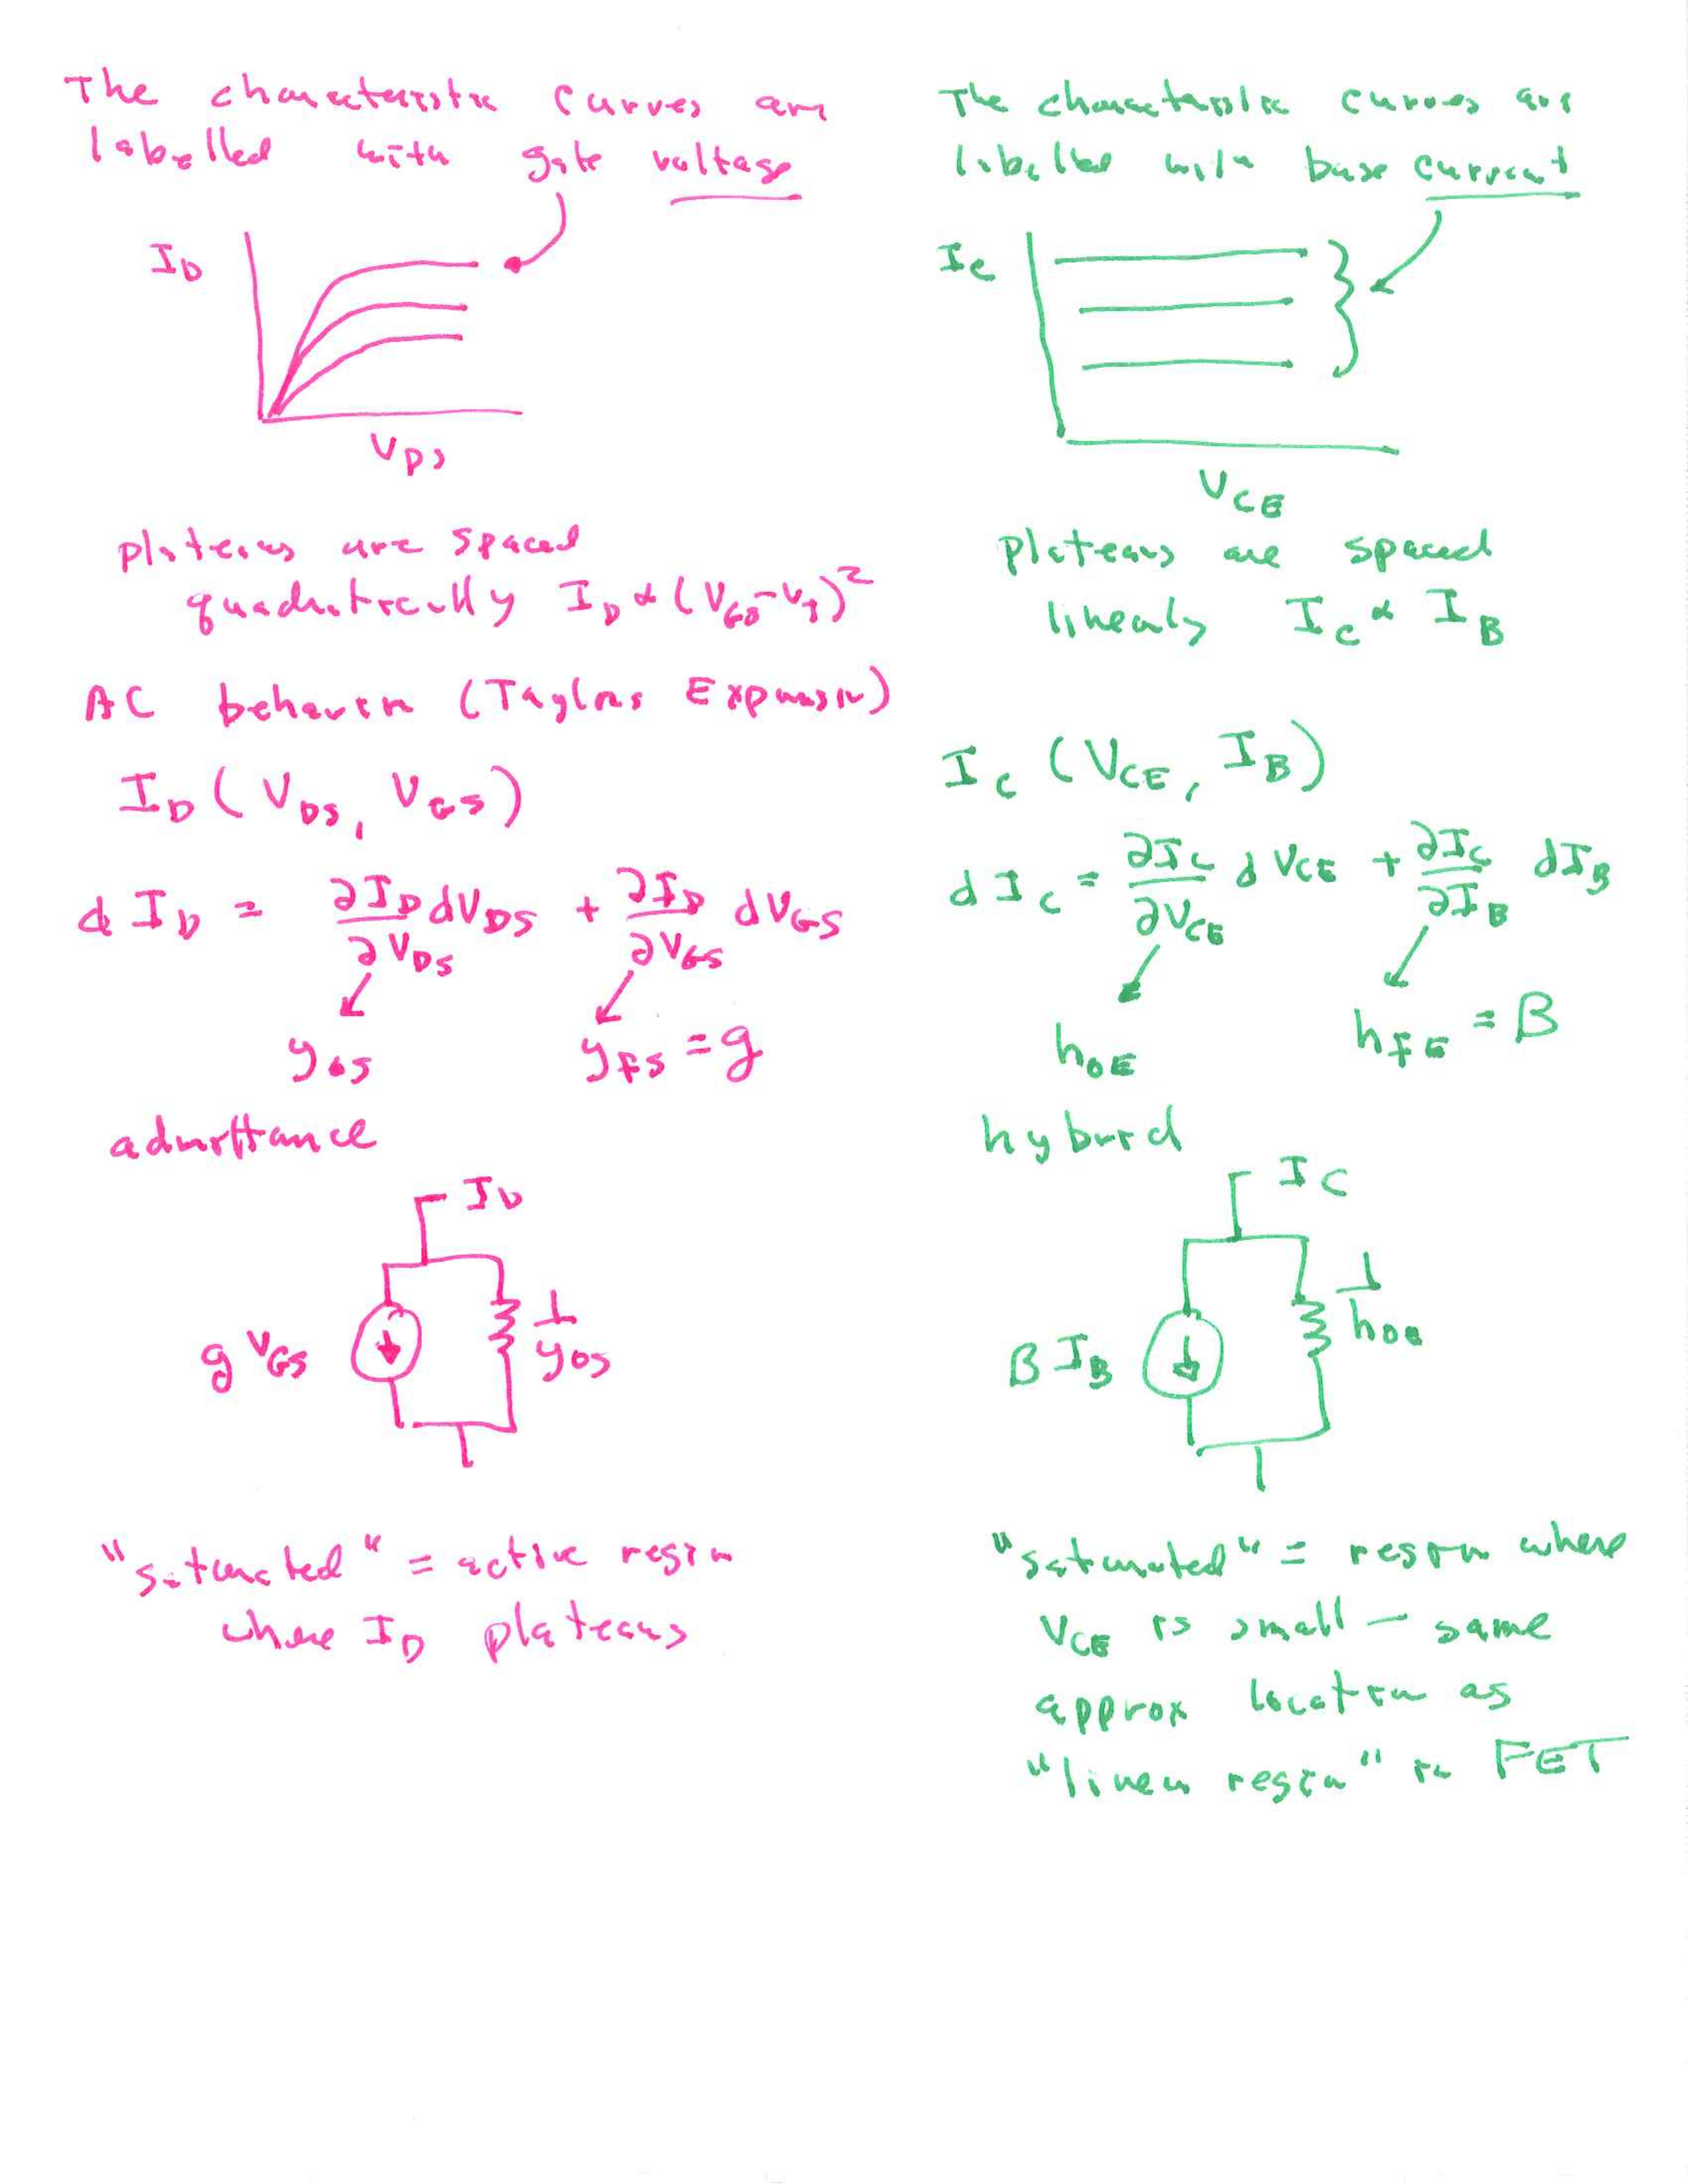 The characteristic curves are
labelled with gate voltage
I_D
V_DS
plateaus are spaced
quadratically I_D ∝ (V_GS - V_T)^2
AC behavior (Taylors Expansion)
I_D (V_DS, V_GS)
dI_D = ∂I_D/∂V_DS dV_DS + ∂I_D/∂V_GS dV_GS
y_os y_fs = g
admittance
I_D
g V_GS 1/y_os
"saturated" = active region
where I_D plateaus
The characteristic curves are
labelled with base current
I_C
V_CE
plateaus are spaced
linearly I_C ∝ I_B
I_C (V_CE, I_B)
dI_C = ∂I_C/∂V_CE dV_CE + ∂I_C/∂I_B dI_B
h_oE h_fE = β
hybrid
I_C
β I_B 1/h_oe
"saturated" = region where
V_CE is small - same
approx location as
"linear region" in FET